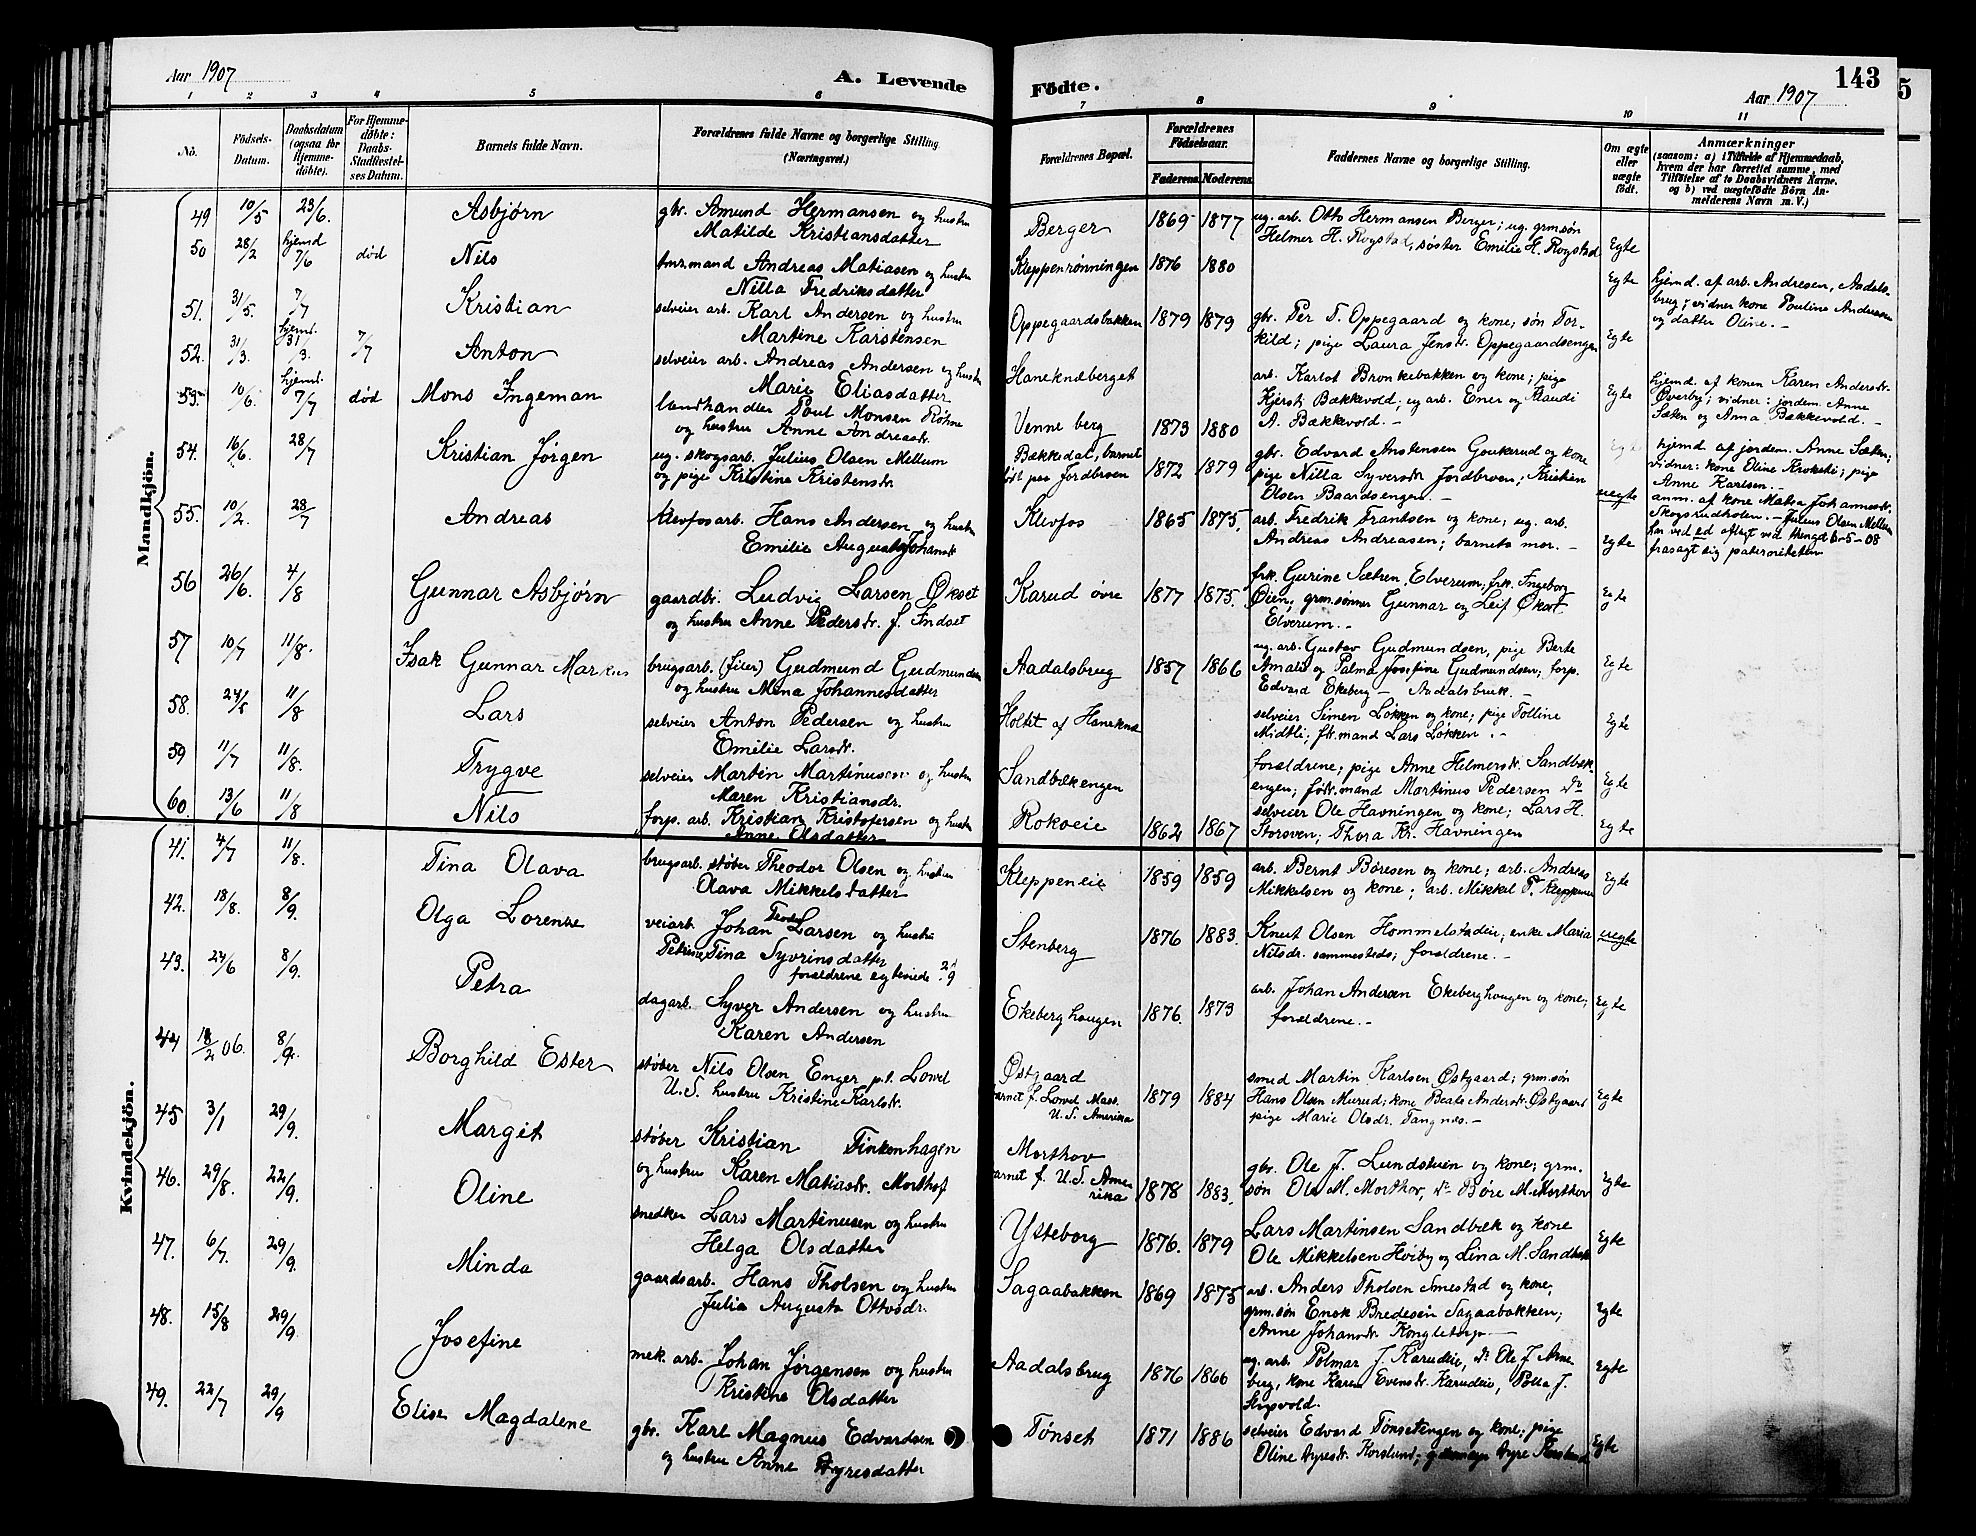 Aar 1907
A. Levende
1 2 3 4 5 6
No.
Födsels-
Datum.
Daabsdatum
(ogsaa for
Hjemme-
döbte).
For Hjemme-
döbte:
Daabs-
Stadfæstel-
ses Datum.
Barnets fulde Navn.
Forældrenes fulde Navne og borgerlige Stilling.
(Næringsvei.)
Mandkjön.
49 10/5 23/6. Asbjørn gbr. Amund Hermansen og hustru
Matilde Kristiansdatter
50 28/2 hjemd 7/6 død Nils tmr.mand Andreas Matiasen og hustru
Nilla Fredriksdatter
51. 31/5. 7/7 Kristian selveier arb. Karl Andersen og hustru
Martine Karstensen
52. 31/3. hjemd. 31/3. 7/7 Anton selveier arb. Andreas Andersen og hustru
Marie Eliasdatter
53. 10/6. hjemd. 7/7 død Mons Ingeman landhandler Poul Monsen Røhne
og hustru Anne Andreasdr.
54. 16/6. 28/7 Kristian Jørgen ug. skogsarb. Julius Olsen Mellum
og pige Kristine Kristensdr.
55. 10/2. 28/7 Andreas klevfosarb. Hans Andersen og hustru
Emilie Augusta Johansdr
56 26/6. 4/8 Gunnar Asbjørn gaardbr. Ludvig Larsen Økset
og hustru Anne Pedersdr. f. Indset
57 10/7 11/8. Isak Gunnar Markus brugsarb. (filer) Gudmund Gudmundsen
og hustru Mina Johannesdatter
58. 24/5 11/8 Lars selveier Anton Pedersen og hustru
Emilie Larsdr.
59 11/7 11/8. Trygve selveier Martin Martinusen og hustru
Maren Kristiansdr.
60. 13/6 11/8 Nils forp. arb. Kristian Kristofersen og hustru
Anne Olsdatter
Kvindekjön.
41. 4/7 11/8. Tina Olava brugsarb. støber Theodor Olsen og hustru
Olava Mikkelsdatter
42. 18/8. 8/9. Olga Lorense veiarb. Johan Larsen og hustru
Petrine Tina Syvrinsdatter
forældrene egteviede 2/9
43. 24/6 8/9. Petra dagarb. Syver Andersen og hustru
Karen Andersen
44 18/2 06. 8/9. Borghild Ester støber Nils Olsen Enger p.t. Lowel
U.S. hustru Kristine Karlsdr.
45 3/1 29/9. Margit støber Kristian Finkenhagen
og hustru Karen Matiasdr. Morthof
46. 29/8. 22/9. Oline snedker Lars Martinusen og hustru
Helga Olsdatter
47. 6/7. 29/9. Minda gaardsarb. Hans Tholsen og hustru
Julie Augusta Ottosdr.
48. 15/8 29/9. Josefine mek. arb. Johan Jørgensen og hustru
Kristine Olsdatter
49. 22/7 29/9 Elise Magdalene gbr. Karl Magnus Edvardsen
og hustru Anne Dyresdatter
Födte.
143
5
Aar 1907
7 8 9 10 11
Forældrenes Bopæl.
Forældrenes
Födselsaar.
Faderens. Moderens.
Faddernes Navne og borgerlige Stilling.
Om ægte
eller
uægte
födt.
Anmærkninger
(saasom: a) i Tilfælde af Hjemmedaab,
hvem der har forrettet samme, med
Tilföielse af to Daabsvidners Navne.
og b) ved uægtefödte Börn An-
melderens Navn m. V.)
Berger 1869 1877 ug. arb. Otto Hermansen Berger; ug. grmsøn
Helmer H. Rogstad, søster Emilie H. Rogstad Egte
Kleppenrønningen 1876 1880 Egte hjemd. af arb. Andresen, Aadals-
brug; vidner kone Pouline Andresen
og datter Oline.-
Oppegaardsbakken 1879 1879 gbr. Per T. Oppegaard og kone; søn Tor-
kild; pige Laura Jensdr. Oppegaardsengen Egte
Haneknæberget arb. Karlot Bronkebakken og kone; pige
Kjersti Bækkevold, ug arb. Ener og Klaudi
A. Bækkevold.- Egte hjemd. af konen Karen Andersdr.
Øverby; vidner: jordem. Anne
Sæten og Anna Bækkevold.-
Venneberg 1873 1880 hjemd af jordem. Anne Sæten;
vidner: kone Oline; pige
Anne Karlsen.-
Bækkedal, barnet
født paa Jordbroen 1872 1879 gbr. Edvard Anstensen Goukerud og kone
pige Nilla Syversdr Jordbroen; Kristian
Olsen Baardsengen.- uegte anm. af kone Matea Johannesdr.
Skogsrudholen.- Julius Olsen Mellum
har ved ed aflagt ved thinget 6-5-08
frasagt sig paterniteten
Klevfos 1865 1875. arb. Fredrik Frantsen og kone; ug. arb.
Andreas Andreasen; barnets mor.- Egte
Karud øvre 1877 1875. frk. Gurine Sætren, Elverum; frk. Ingeborg
Øien; grm.sønner Gunnar og Leif Økset
Elverum.- Egte
Aadalsbrug 1857 1866 ug. arb. Gustav Gudmundsen, pige Berte
Amalie og Palma Josefine Gudmundsen; forp.
Edvard Ekeberg - Aadalsbruk.- Egte
Holtet af Hanekne selveier Simen Løkken og kone; pige Tolline
Midtli; fv.mand Lars Løkken.- Egte
Sandbækengen forældrene; pige Anne Helmersdr. Sandbæk-
engen; fødr.mand Martinus Pedersen do Egte
Rokoeie 1862 1867 selveier Ole Havningen og kone; Lars H.
Storsven; Thora Kr. Havningen Egte
Kleppeneie 1859 1859 arb. Bernt Børesen og kone; arb. Andreas
Mikkelsen og kone; arb. Mikkel P. Kleppeneie Egte
Stenberg 1876 1883. Knut Olsen Hommelstadeie; enke Maria
Nilsdr. sammesteds; forældrene.- uegte
Ekeberghaugen 1876. 1879 arb. Johan Andersen Ekeberghaugen og kone;
forældrene.- Egte
Østgaard
barnet f. Lowel Mass.
U.S. Amerika 1879 1884 smed Martin Karlsen Østgaard; grm.søn
Hans Olsen Murud; kone Beate Andersdr. Østgaard
pige Marie Olsdr. Tangnes.- Egte
Morthov
barnet f. U.S. Ame-
rika 1878 1883. gbr. Ole J. Lundstuen og kone; grm.
søn Ole M. Morthov, do Børe M. Morthov Egte
Ysteborg 1876. 1879 Lars Martinsen Sandbæk og kone
Ole Mikkelsen Hviby og Lina M. Sandbæk Egte
Sagaabakken 1869 1875 arb. Anders Tholsen Smestad og kone;
grm.søn Enok Bredesen Sagaabakken;
Anne Johansdr. Kongletorp.- Egte
Aadalsbrug 1876 1866 ug. arb. Polmar J. Karudeie, do Ole J. Arne
berg, kone Karen Evensdr. Karudeie, Polla J.
Skysvold. Egte
Tønset 1871 1886 selveier Edvard Tønsetengen og kone; pige
Oline Dyresdr. Korslund; Dyre Korslund Egte